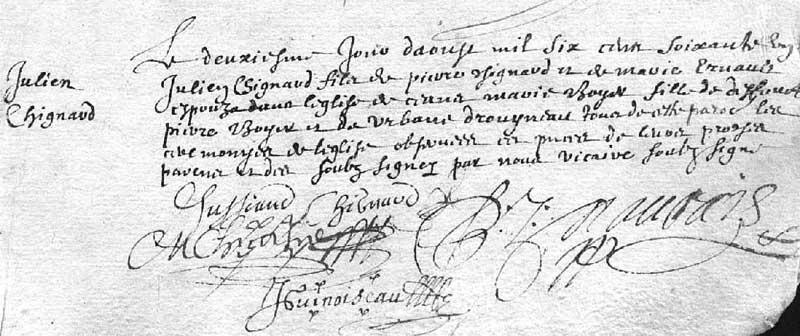 Julien
Chignard
Le deuxiesme Jour daoust mil six cens soixante
Julien Chignard fils de pierre Chignard et de marie Ernault
espouza dans leglise de ceans marie Boyer fille de deffunct
pierre Boyer et de urbane drouyneau tous de cette paroc les
ceremonyes de leglise observees es pnces de leurs proches
parens et des soubz signez par nous vicaire soubz signe
Chignard
Guinoiseau